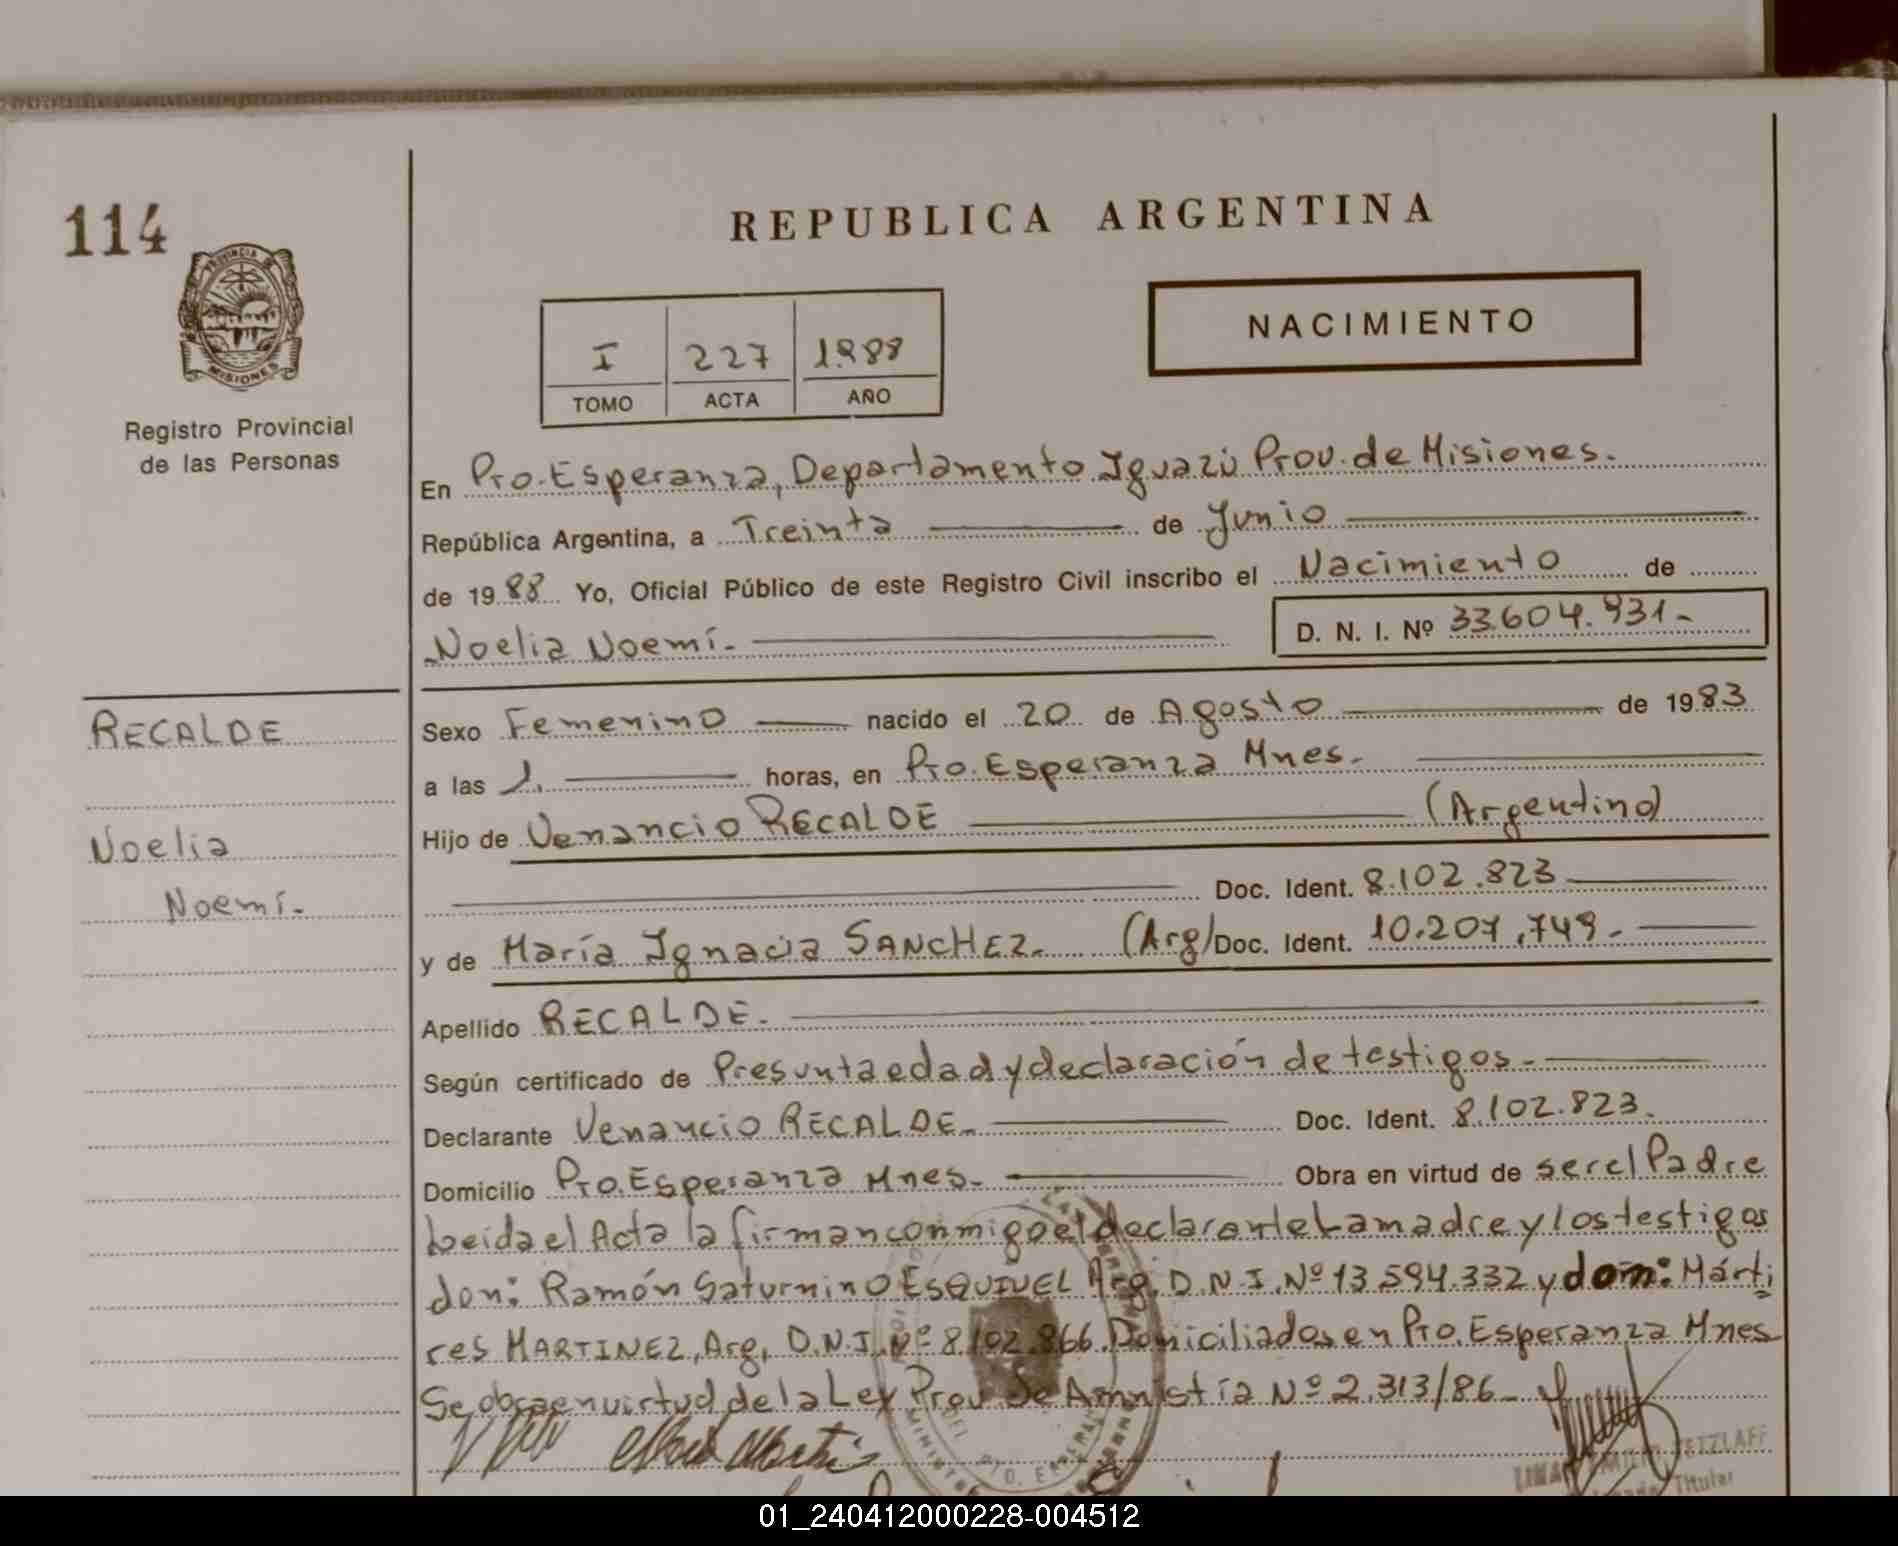 114
REPUBLICA ARGENTINA
PROVINCIA DE
MISIONES
Registro Provincial
de las Personas
I 227 1988
TOMO ACTA AÑO
NACIMIENTO
En Pto. Esperanza, Departamento Iguazú Prov. de Misiones.
República Argentina, a Treinta de Junio
de 1988 Yo, Oficial Público de este Registro Civil inscribo el Nacimiento de
Noelia Noemí.
D. N. I. Nº 33.604.931-
RECALDE
Noelia
Noemí.
Sexo Femenino nacido el 20 de Agosto de 1983
a las 1. horas, en Pto. Esperanza Mnes.
Hijo de Venancio RECALDE (Argentino)
Doc. Ident. 8.102.823
y de María Ignacia SANCHEZ. (Arg) Doc. Ident. 10.207.749.-
Apellido RECALDE.
Según certificado de Presunta edad y declaración de testigos.
Declarante Venancio RECALDE. Doc. Ident. 8.102.823.
Domicilio Pto. Esperanza Mnes. Obra en virtud de ser el Padre
Leida el Acta la firman conmigo el declarante La madre y los testigos
don: Ramón Saturnino ESQUIVEL Arg. D.N.I. Nº 13.594.332 y dom: Márti
res MARTINEZ, Arg, D.N.I. Nº 8.102.866. Domiciliados en Pto. Esperanza Mnes
Se obra en virtud de la Ley Prov. de Amnistía Nº 2.313/86-
TETZLAFF
Titular
01_240412000228-004512